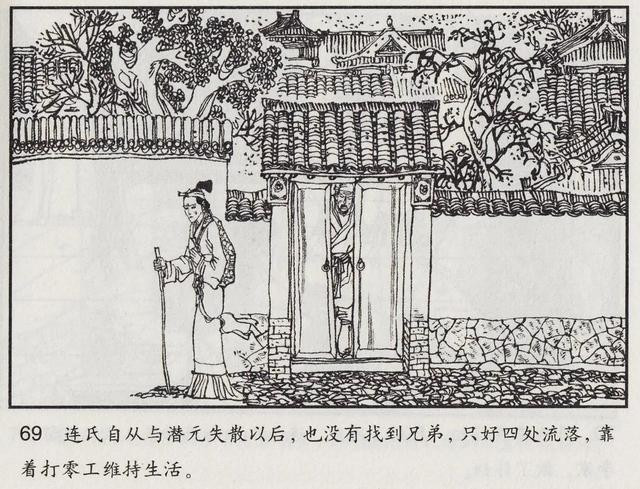 69 连氏自从与潜元失散以后，也没有找到兄弟，只好四处流落，靠
着打零工维持生活。